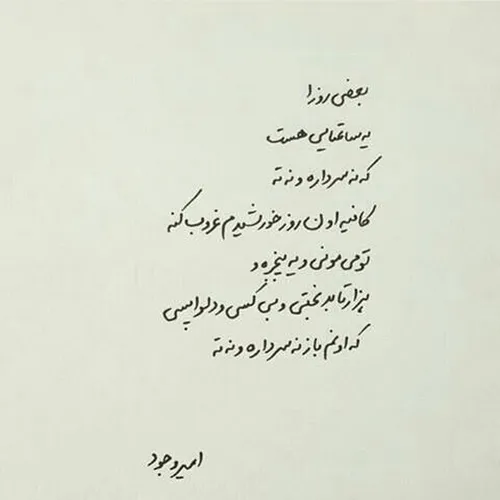 بعضی روزا
یه ساعتایی هست
که نه سر داره و نه ته
کافیه اون روز خورشیدم غروب کنه
تو می مونی و یه پنجره و
هزار تا بدبختی و بی کسی و دلواپسی
که اونم باز نه سر داره و نه ته
امیر وجود